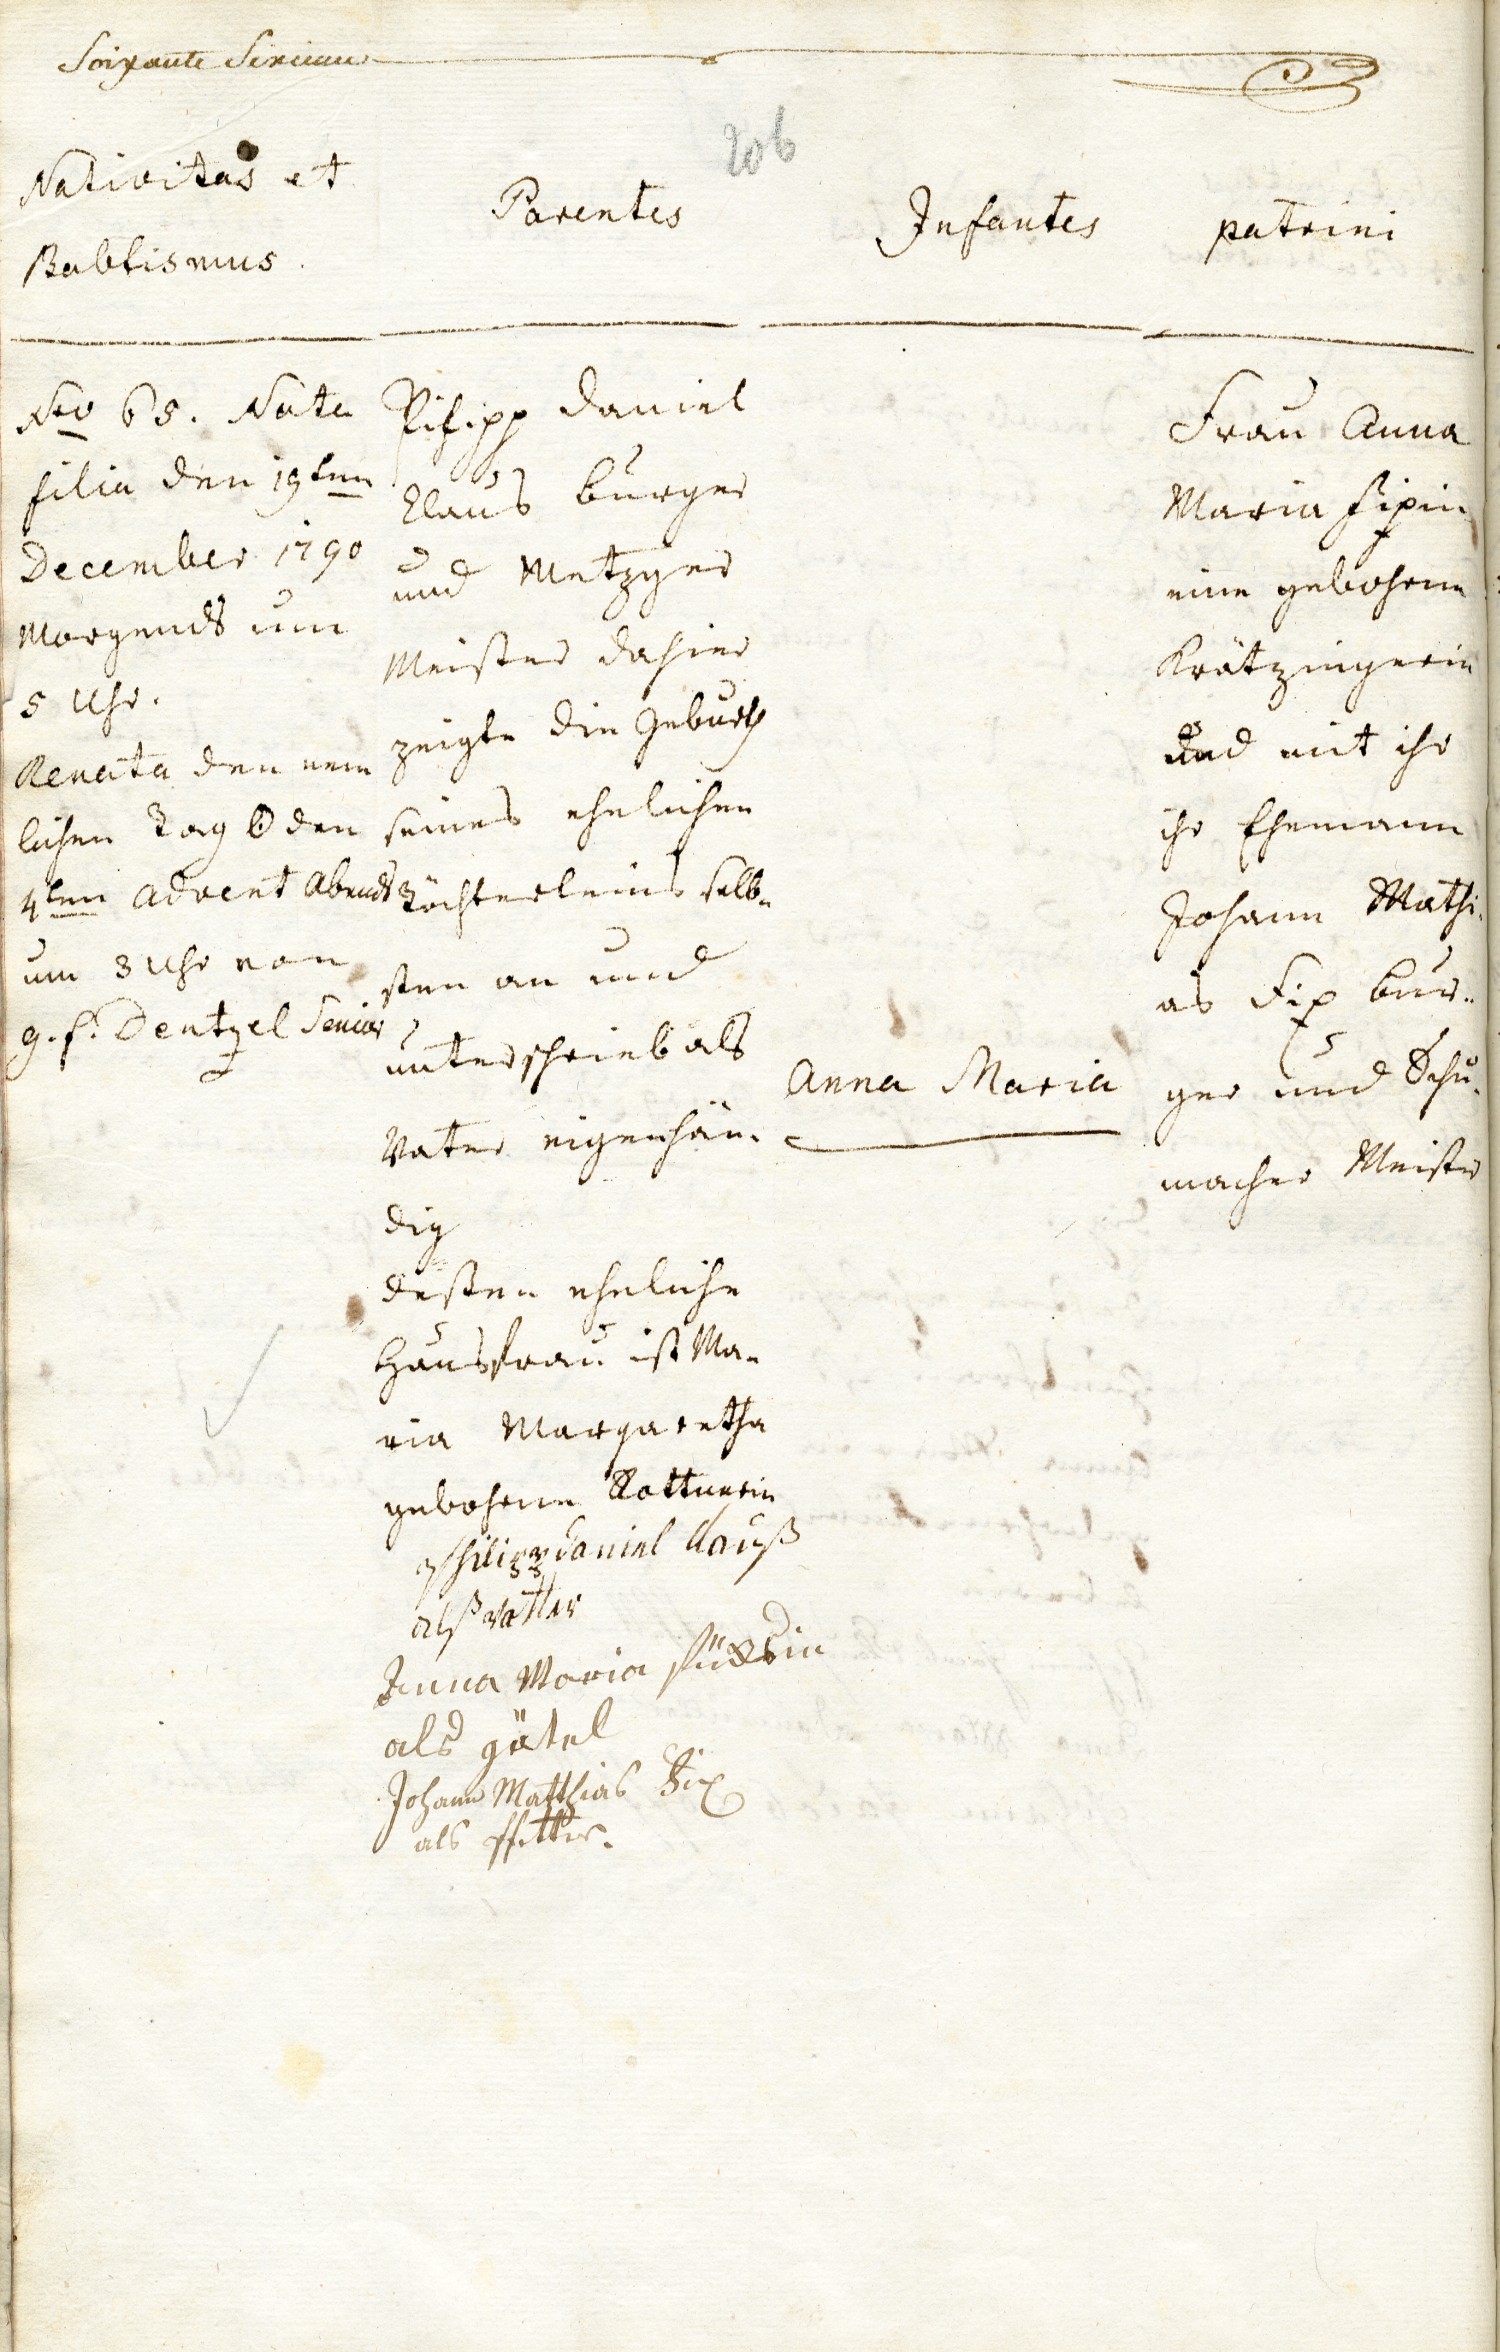 Soixante Sixieme
206
Nativitas et
Babtismus.
Parentes
Infantes
patrini
Nro 65. Nata
filia den 19ten
December 1790
Morgends um
5 Uhr.
Renata den nem
lichen Tag den
4ten Advent Abends
um 3 Uhr von
g. f. Dentzel Senior
Pilipp Daniel
Claus burger
und Metzger
Meister dahier
zeigte die Geburth
seines ehelichen
Töchterleins selb-
sten an und
unterschrieb als
Vater eigenhän-
dig
dessen eheliche
Hausfrau ist Ma-
ria Margaretha
gebohrne Kottnerin
Philipp daniel Clauß
alß vatter
Anna Maria
als götel
Johann Matthias Fix
als Pfetter.
Anna Maria
Frau Anna
Maria Fixin
eine gebohrne
Krätzingerin
und mit ihr
ihr Ehemann
Johann Mathi-
as Fix bur-
ger und Schu-
macher Meister